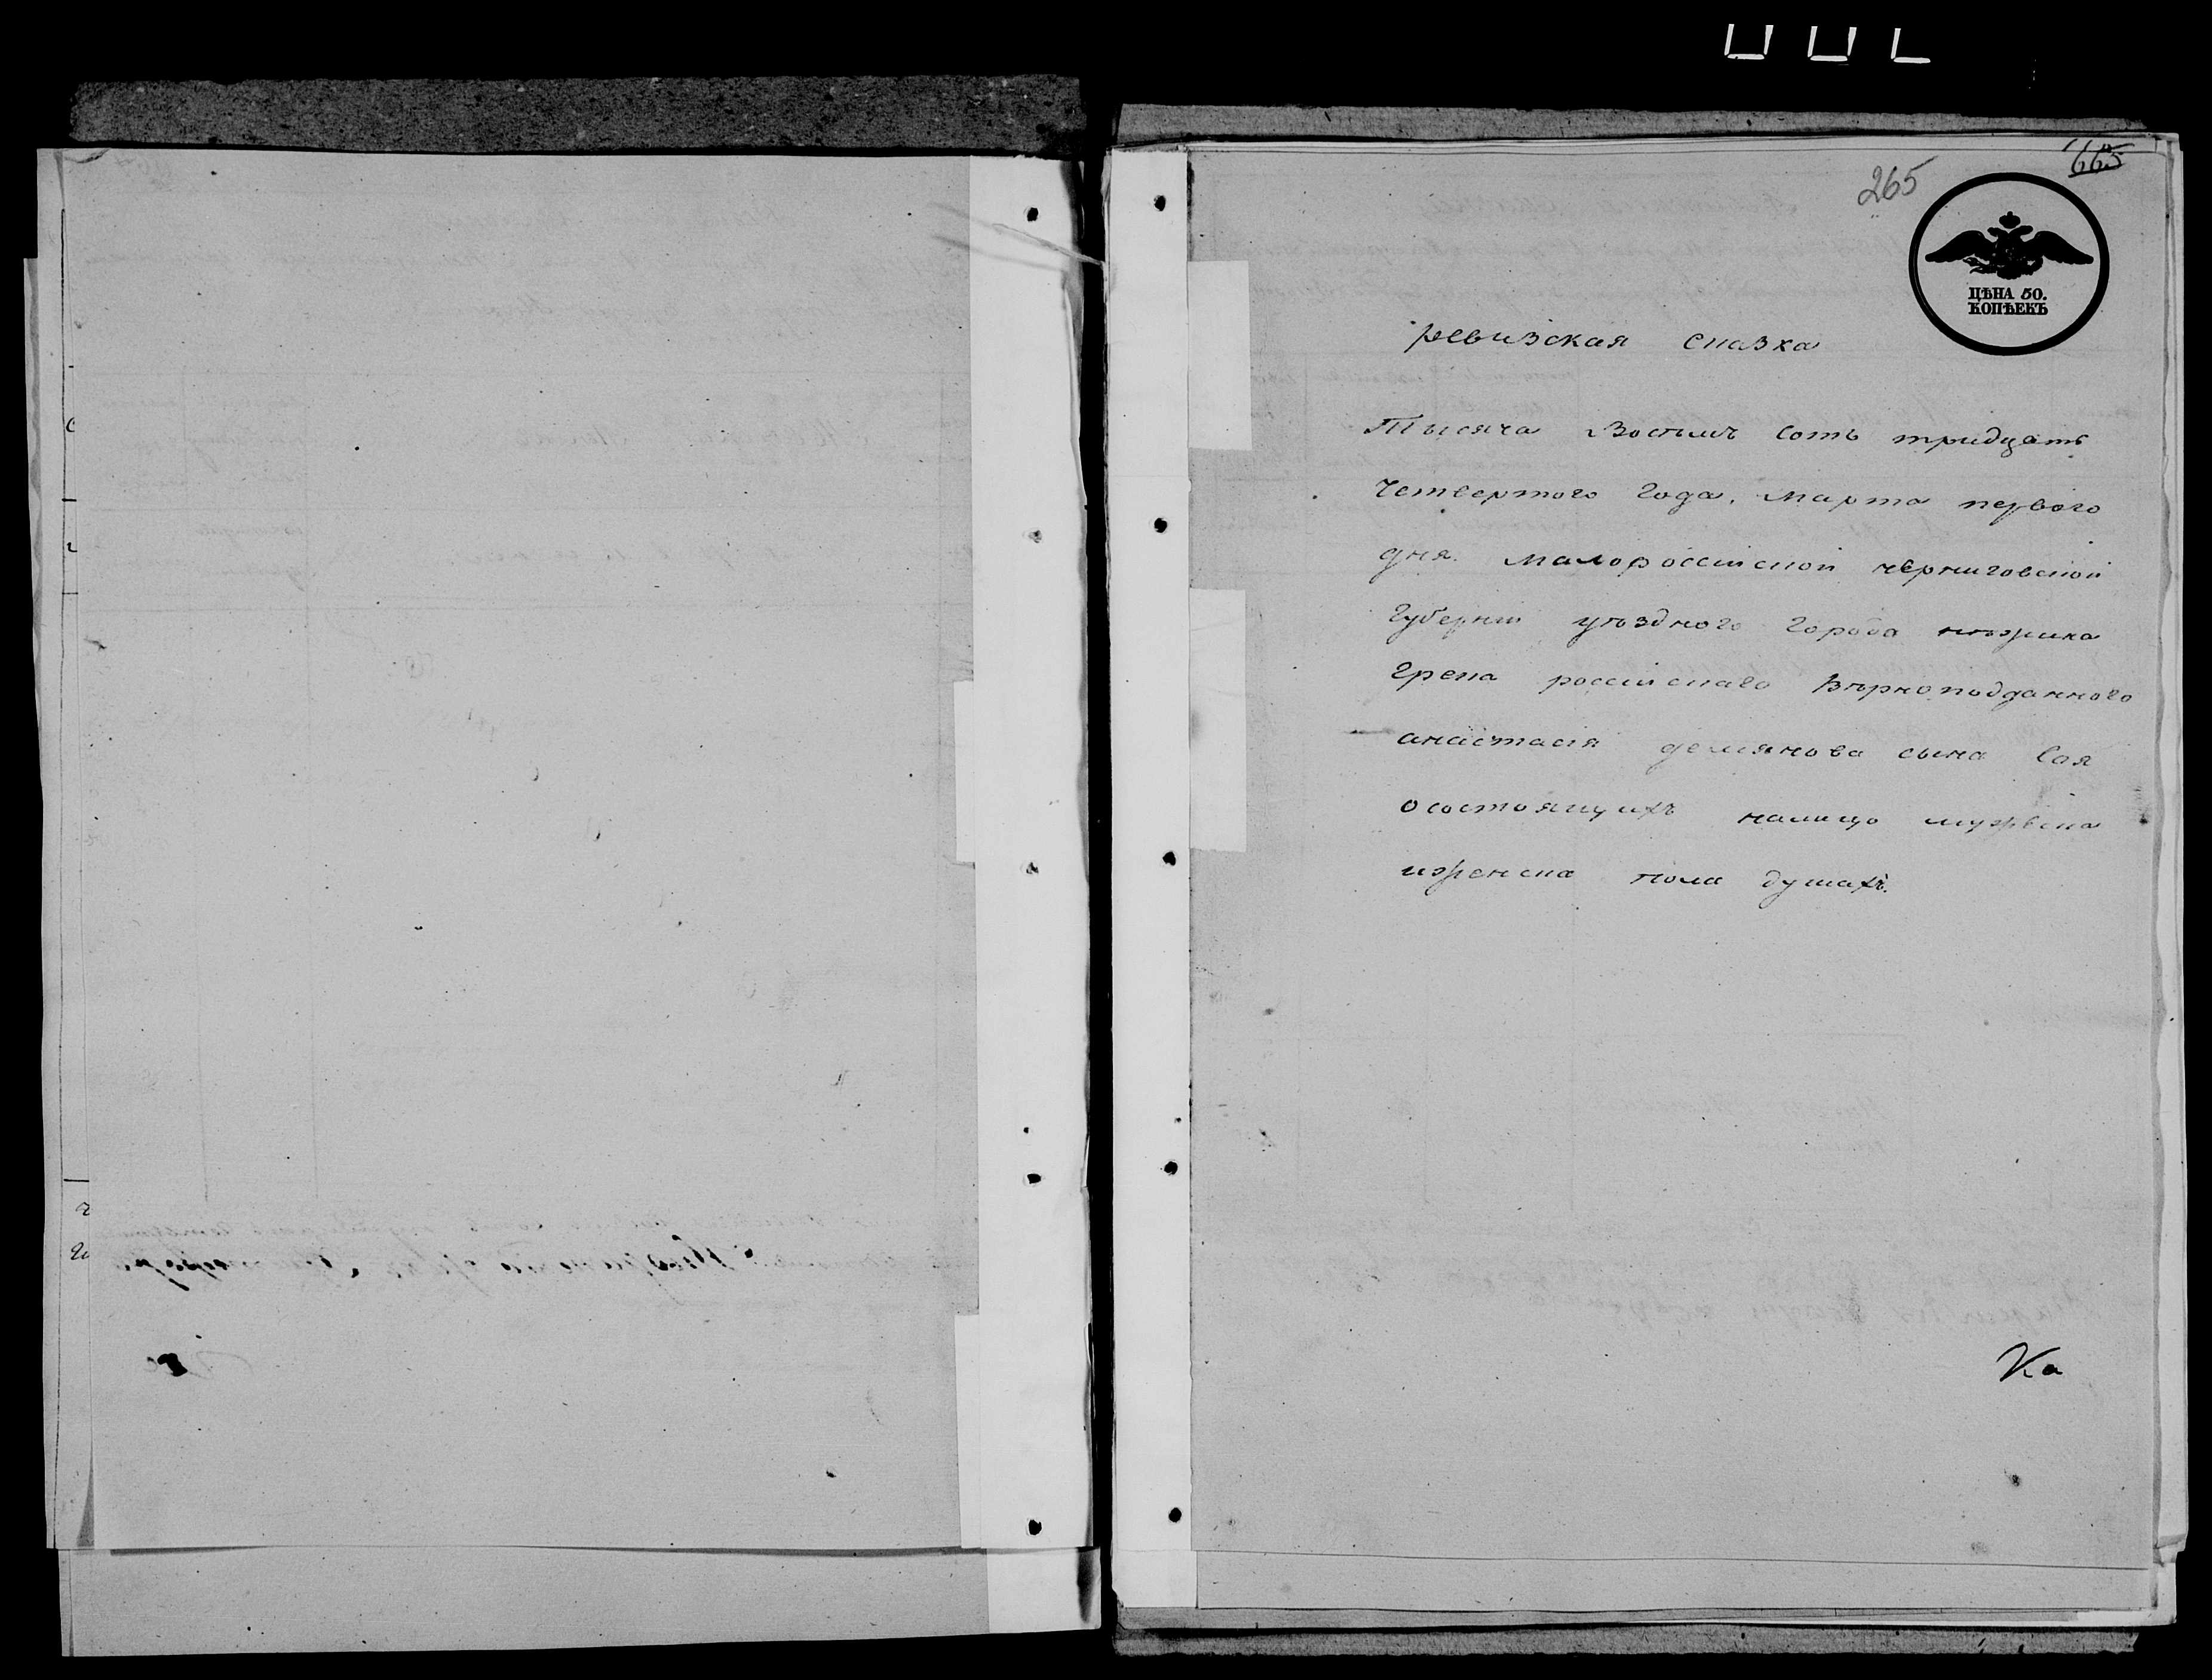 665
265
ЦѢНА 50.
КОПѢЕКЪ
ревизская сказка
Тысяча Восѣмъ сотъ тридцать
Четвертого Года, марта первого
дня. малороссійской черниговской
Губерніи уѣздного Города нѣжина
Грека россійскаго Вѣрноподданного
анастасія демянова сына Сая
осостоящихъ налицо мужеска
иженска пола душахъ.
Ка